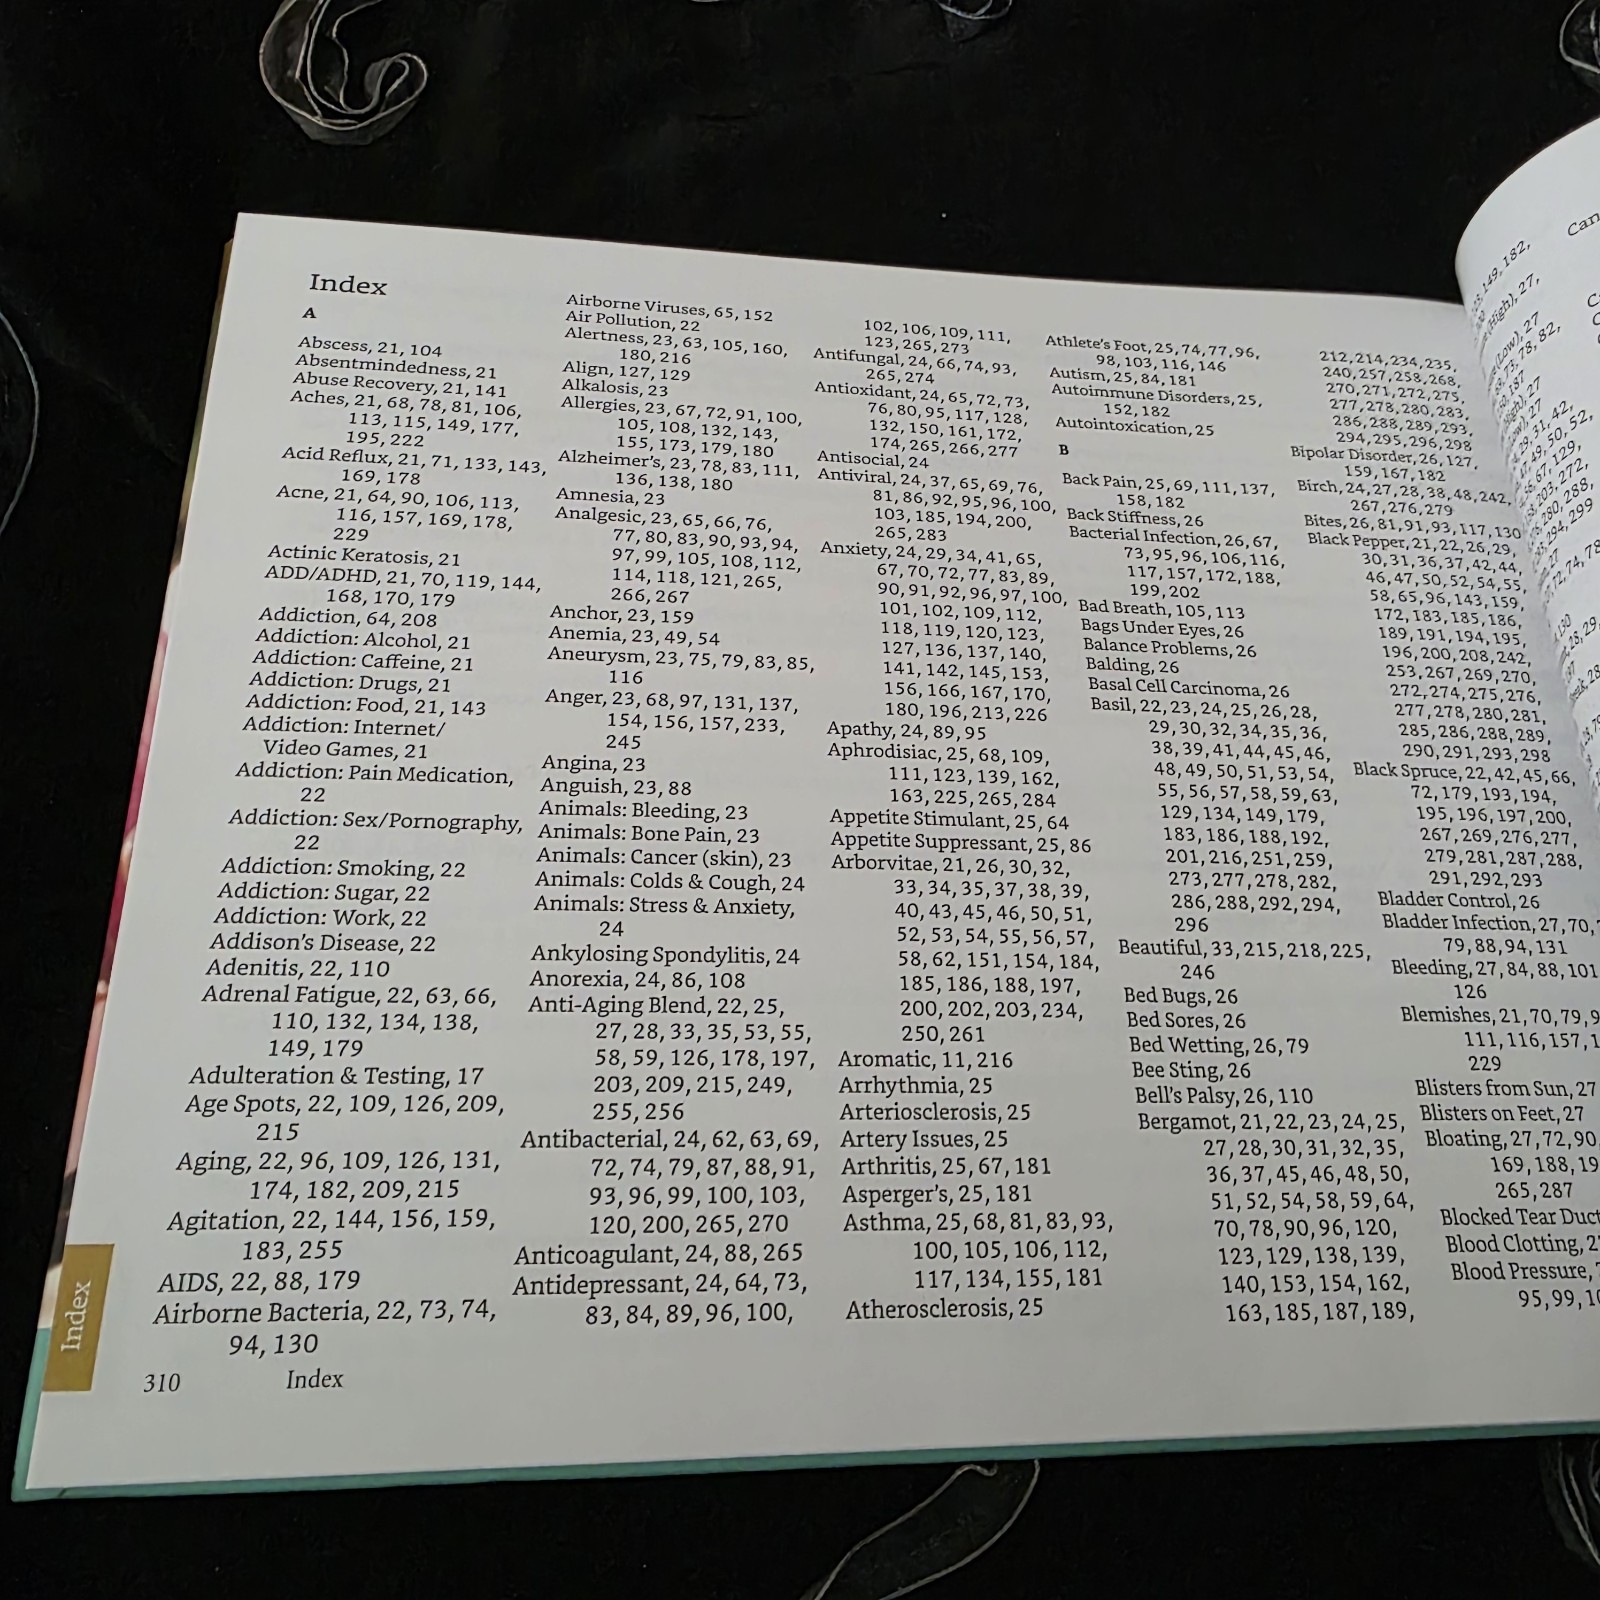 Index
A
Abscess, 21, 104
Absentmindedness, 21
Abuse Recovery, 21, 141
Aches, 21, 68, 78, 81, 106,
113, 115, 149, 177,
195, 222
Acid Reflux, 21, 71, 133, 143,
169, 178
Acne, 21, 64, 90, 106, 113,
116, 157, 169, 178,
229
Actinic Keratosis, 21
ADD/ADHD, 21, 70, 119, 144,
168, 170, 179
Addiction, 64, 208
Addiction: Alcohol, 21
Addiction: Caffeine, 21
Addiction: Drugs, 21
Addiction: Food, 21, 143
Addiction: Internet/
Video Games, 21
Addiction: Pain Medication,
22
Addiction: Sex/Pornography,
22
Addiction: Smoking, 22
Addiction: Sugar, 22
Addiction: Work, 22
Addison's Disease, 22
Adenitis, 22, 110
Adrenal Fatigue, 22, 63, 66,
110, 132, 134, 138,
149, 179
Adulteration & Testing, 17
Age Spots, 22, 109, 126, 209,
215
Aging, 22, 96, 109, 126, 131,
174, 182, 209, 215
Agitation, 22, 144, 156, 159,
183, 255
AIDS, 22, 88, 179
Airborne Bacteria, 22, 73, 74,
94, 130
Airborne Viruses, 65, 152
Air Pollution, 22
Alertness, 23, 63, 105, 160,
180, 216
Align, 127, 129
Alkalosis, 23
Allergies, 23, 67, 72, 91, 100,
105, 108, 132, 143,
155, 173, 179, 180
Alzheimer's, 23, 78, 83, 111,
136, 138, 180
Amnesia, 23
Analgesic, 23, 65, 66, 76,
77, 80, 83, 90, 93, 94,
97, 99, 105, 108, 112,
114, 118, 121, 265,
266, 267
Anchor, 23, 159
Anemia, 23, 49, 54
Aneurysm, 23, 75, 79, 83, 85,
116
Anger, 23, 68, 97, 131, 137,
154, 156, 157, 233,
245
Angina, 23
Anguish, 23, 88
Animals: Bleeding, 23
Animals: Bone Pain, 23
Animals: Cancer (skin), 23
Animals: Colds & Cough, 24
Animals: Stress & Anxiety,
24
Ankylosing Spondylitis, 24
Anorexia, 24, 86, 108
Anti-Aging Blend, 22, 25,
27, 28, 33, 35, 53, 55,
58, 59, 126, 178, 197,
203, 209, 215, 249,
255, 256
Antibacterial, 24, 62, 63, 69,
72, 74, 79, 87, 88, 91,
93, 96, 99, 100, 103,
120, 200, 265, 270
Anticoagulant, 24, 88, 265
Antidepressant, 24, 64, 73,
83, 84, 89, 96, 100,
102, 106, 109, 111,
123, 265, 273
Antifungal, 24, 66, 74, 93,
265, 274
Antioxidant, 24, 65, 72, 73,
76, 80, 95, 117, 128,
132, 150, 161, 172,
174, 265, 266, 277
Antisocial, 24
Antiviral, 24, 37, 65, 69, 76,
81, 86, 92, 95, 96, 100,
103, 185, 194, 200,
265, 283
Anxiety, 24, 29, 34, 41, 65,
67, 70, 72, 77, 83, 89,
90, 91, 92, 96, 97, 100,
101, 102, 109, 112,
118, 119, 120, 123,
127, 136, 137, 140,
141, 142, 145, 153,
156, 166, 167, 170,
180, 196, 213, 226
Apathy, 24, 89, 95
Aphrodisiac, 25, 68, 109,
111, 123, 139, 162,
163, 225, 265, 284
Appetite Stimulant, 25, 64
Appetite Suppressant, 25, 86
Arborvitae, 21, 26, 30, 32,
33, 34, 35, 37, 38, 39,
40, 43, 45, 46, 50, 51,
52, 53, 54, 55, 56, 57,
58, 62, 151, 154, 184,
185, 186, 188, 197,
200, 202, 203, 234,
250, 261
Aromatic, 11, 216
Arrhythmia, 25
Arteriosclerosis, 25
Artery Issues, 25
Arthritis, 25, 67, 181
Asperger's, 25, 181
Asthma, 25, 68, 81, 83, 93,
100, 105, 106, 112,
117, 134, 155, 181
Atherosclerosis, 25
Athlete's Foot, 25, 74, 77, 96,
98, 103, 116, 146
Autism, 25, 84, 181
Autoimmune Disorders, 25,
152, 182
Autointoxication, 25
B
Back Pain, 25, 69, 111, 137,
158, 182
Back Stiffness, 26
Bacterial Infection, 26, 67,
73, 95, 96, 106, 116,
117, 157, 172, 188,
199, 202
Bad Breath, 105, 113
Bags Under Eyes, 26
Balance Problems, 26
Balding, 26
Basal Cell Carcinoma, 26
Basil, 22, 23, 24, 25, 26, 28,
29, 30, 32, 34, 35, 36,
38, 39, 41, 44, 45, 46,
48, 49, 50, 51, 53, 54,
55, 56, 57, 58, 59, 63,
129, 134, 149, 179,
183, 186, 188, 192,
201, 216, 251, 259,
273, 277, 278, 282,
286, 288, 292, 294,
296
Beautiful, 33, 215, 218, 225,
246
Bed Bugs, 26
Bed Sores, 26
Bed Wetting, 26, 79
Bee Sting, 26
Bell's Palsy, 26, 110
Bergamot, 21, 22, 23, 24, 25,
27, 28, 30, 31, 32, 35,
36, 37, 45, 46, 48, 50,
51, 52, 54, 58, 59, 64,
70, 78, 90, 96, 120,
123, 129, 138, 139,
140, 153, 154, 162,
163, 185, 187, 189,
212, 214, 234, 235,
240, 257, 258, 268,
270, 271, 272, 275,
277, 278, 280, 283,
286, 288, 289, 293,
294, 295, 296, 298
Bipolar Disorder, 26, 127,
159, 167, 182
Birch, 24, 27, 28, 38, 48, 242,
267, 276, 279
Bites, 26, 81, 91, 93, 117, 130
Black Pepper, 21, 22, 26, 29,
30, 31, 36, 37, 42, 44,
46, 47, 50, 52, 54, 55,
58, 65, 96, 143, 159,
172, 183, 185, 186,
189, 191, 194, 195,
196, 200, 208, 242,
253, 267, 269, 270,
272, 274, 275, 276,
277, 278, 280, 281,
285, 286, 288, 289,
290, 291, 293, 298
Black Spruce, 22, 42, 45, 66,
72, 179, 193, 194,
195, 196, 197, 200,
267, 269, 276, 277,
279, 281, 287, 288,
291, 292, 293
Bladder Control, 26
Bladder Infection, 27, 70,
79, 88, 94, 131
Bleeding, 27, 84, 88, 101
126
Blemishes, 21, 70, 79,
111, 116, 157,
229
Blisters from Sun, 27
Blisters on Feet, 27
Bloating, 27, 72, 90
169, 188,
265, 287
Blocked Tear Duct
Blood Clotting,
Blood Pressure,
95, 99,
310 Index
Index